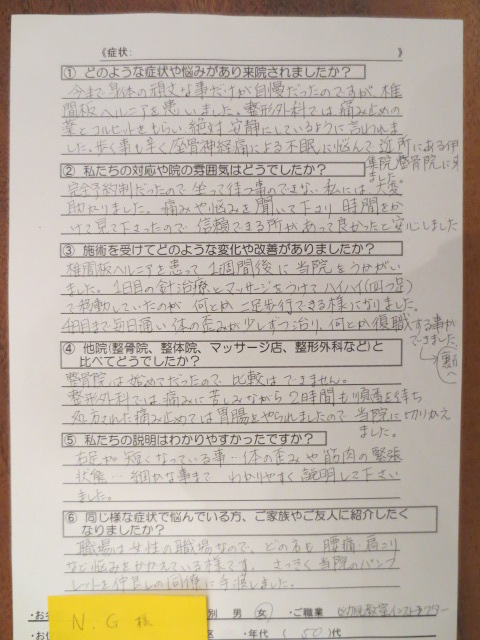 《症状: 》
① どのような症状や悩みがあり来院されましたか?
今まで身体の頑丈な事だけが自慢だったのですが、椎
間板ヘルニアを患いました。整形外科では痛み止めの
薬とコルセットをもらい、絶対安静にしているように言われま
した。歩く事も辛く座骨神経痛による不眠に悩んで近所にある伊
集院整骨院に来
ました。
② 私たちの対応や院の雰囲気はどうでしたか?
完全予約制だったので坐って待つ事のできない私には、大変
助かりました。痛みや悩みを聞いて下さり時間をか
けて見て下さったので信頼できる所があって良かったと安心しました
③ 施術を受けてどのような変化や改善がありましたか?
椎間板ヘルニアを患って1週間後に当院をうかがい
ました。1日目の針治療とマッサージをつけてハイハイ(四つ足)
で移動していたのが何とか二足歩行できる様になりました。
4日目まで毎日通い体の歪みが少しずつ治り、何とか復職する事が
できました
④ 他院(整骨院、整体院、マッサージ店、整形外科など)と
比べてどうでしたか?
整骨院は始めてだったので比較はできません。
整形外科では痛みに苦しみながら2時間も順番を待ち
処方された痛み止めでは胃腸をやられましたので当院に切りかえ
ました。
⑤ 私たちの説明はわかりやすかったですか?
右足が短くなっている事…体の歪みや筋肉の緊張
状態…細かな事まで わかりやすく説明して下さい
ました。
⑥ 同じ様な症状で悩んでいる方、ご家族やご友人に紹介したく
なりましたか?
職場は女性の職場なので、どの方も腰痛・肩こり
など悩みをかかえている様です。さっそく当院のパンフ
レットを仲良しの同僚に手渡しました。
N.G 様
別 男 女 ・ご職業 幼児教室インストラクター
・年代 (50)代